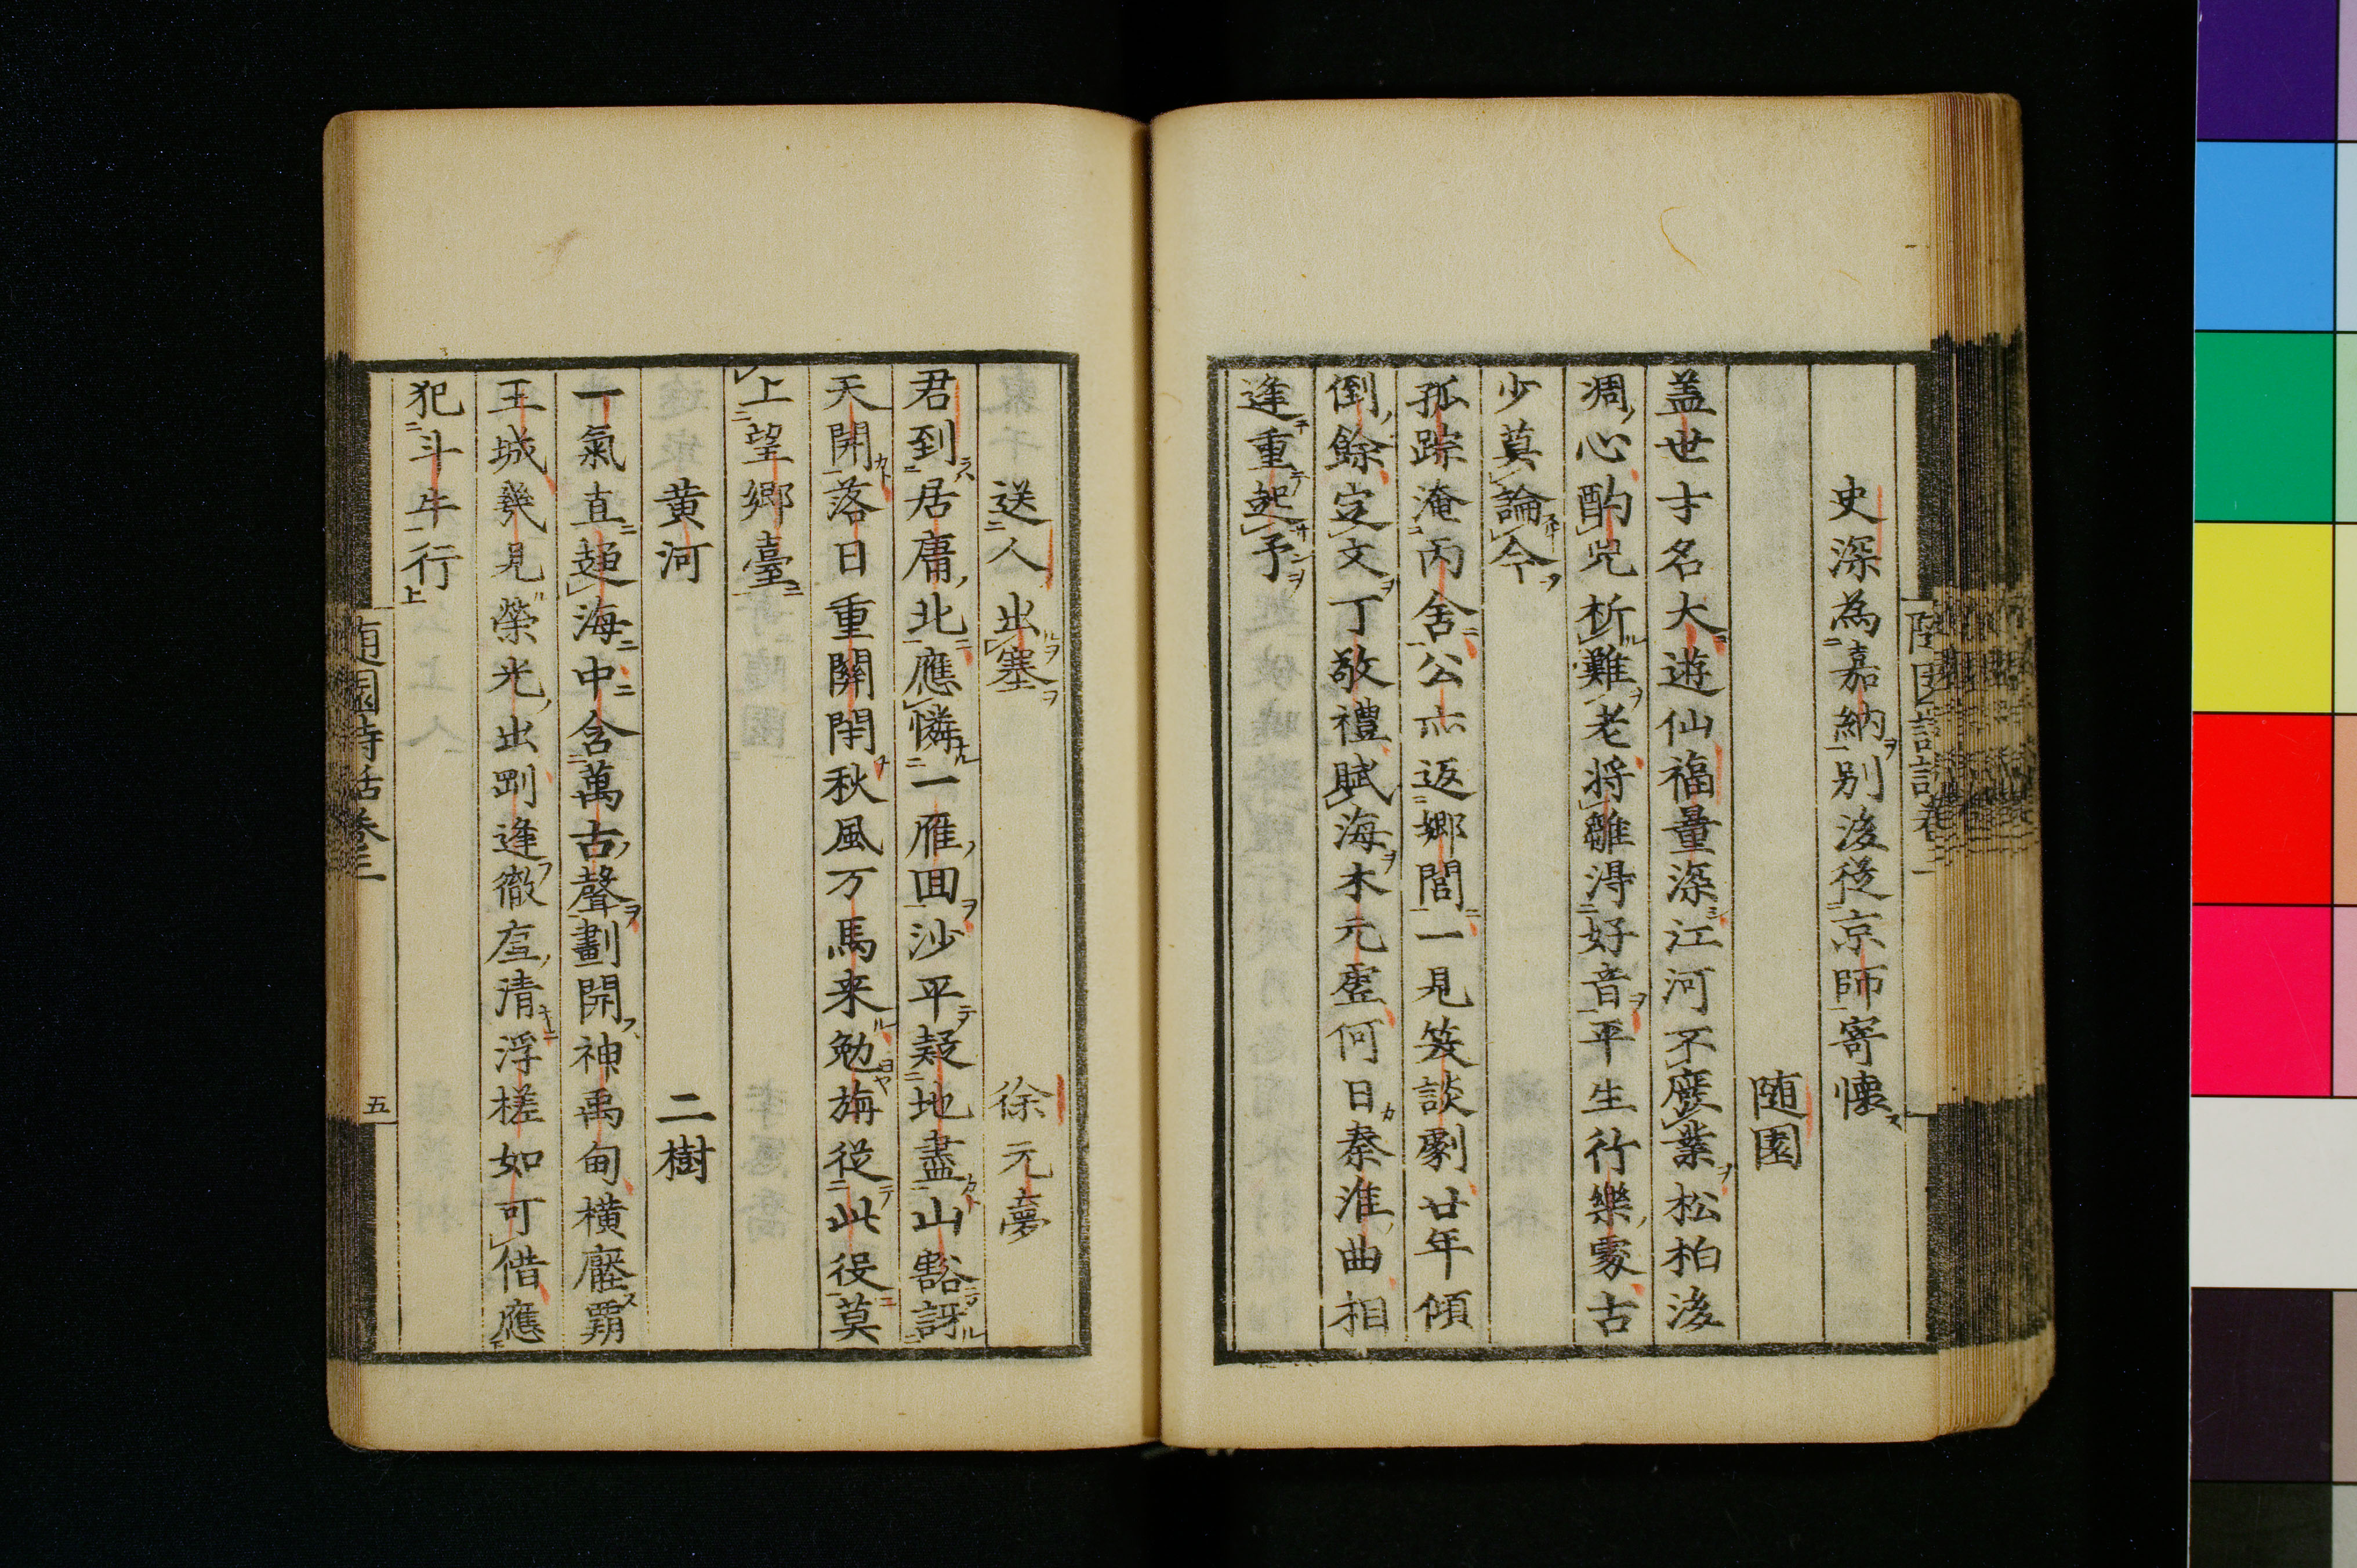 史深為嘉納別後從京師寄懷
随園
盖世才名大遊仙福量深江河不廢業松柏後
凋心酌児析難老将離淂好音平生行樂䖏古
少莫論今
孤踪淹丙舍公亦返鄉閭一見笑談劇廿年傾
倒餘定文丁敬禮賦海木元虛何日秦淮曲相
逢重起予
送人出塞
徐元夢
君到居庸北應憐一雁囬沙平疑地盡山豁訝
天開落日重關閉秋風万馬来勉旃從此役莫
上望鄉臺
黄河
二樹
一氣直趨海中含萬古聲劃開神禹甸横壓覇
王城幾見榮光出罰逢徹底清浮槎如可借應
犯斗牛行
随園詩話巻三
五